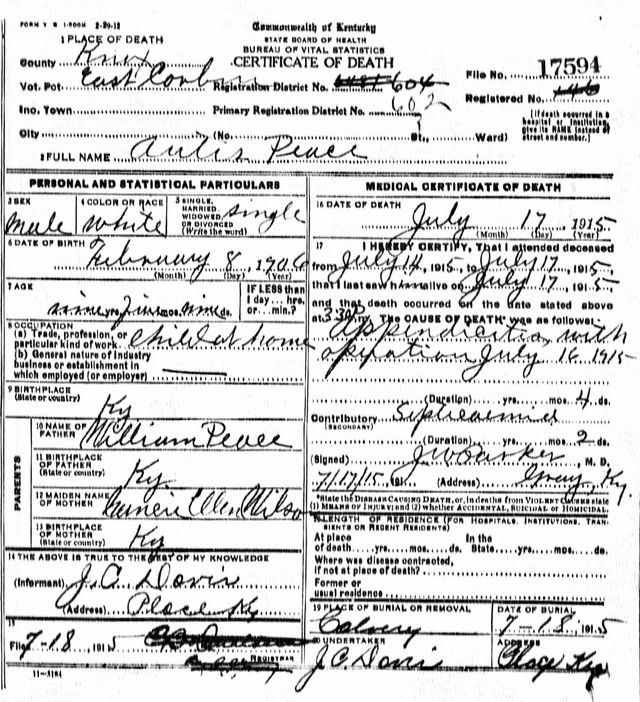 FORM V S 1-500M 2-29-12
Commonwealth of Kentucky
STATE BOARD OF HEALTH
BUREAU OF VITAL STATISTICS
CERTIFICATE OF DEATH
1 PLACE OF DEATH
County Knox
File No. 17594
Vot. Pct. East Corbin Registration District No. 604
Registered No.
Inc. Town Primary Registration District No. 602
City (No. St., Ward)
[If death occurred in a hospital or institution, give its NAME instead of street and number.]
2 FULL NAME Autis Peace
PERSONAL AND STATISTICAL PARTICULARS
3 SEX male
4 COLOR OR RACE white
5 SINGLE, MARRIED, WIDOWED, OR DIVORCED (Write the word) single
6 DATE OF BIRTH February 8, 1906
(Month) (Day) (Year)
7 AGE nine yrs. five mos. nine ds.
IF LESS than 1 day... hrs. or... min.?
8 OCCUPATION
(a) Trade, profession, or particular kind of work child at home
(b) General nature of industry business or establishment in which employed (or employer)
9 BIRTHPLACE (State or country) Ky
PARENTS
10 NAME OF FATHER William Peace
11 BIRTHPLACE OF FATHER (State or country) Ky
12 MAIDEN NAME OF MOTHER Ellen Wilson
13 BIRTHPLACE OF MOTHER (State or country) Ky
14 THE ABOVE IS TRUE TO THE BEST OF MY KNOWLEDGE
(Informant) J. C. Davis
(Address) Place Ky
15
Filed 7-18, 1915
REGISTRAR
11-3184
MEDICAL CERTIFICATE OF DEATH
16 DATE OF DEATH July 17 1915
(Month) (Day) (Year)
17 I HEREBY CERTIFY, That I attended deceased
from July 14, 1915, to July 17, 1915,
that I last saw him alive on July 17, 1915
and that death occurred on the date stated above
at 3:30 P m. The CAUSE OF DEATH* was as follows:
Appendicitis, with
operation July 16 1915
(Duration) yrs. mos. 4 ds.
Contributory Septicaemia
(SECONDARY)
(Duration) yrs. mos. 2 ds.
(Signed) J W Parker, M. D.
7/17/15 (Address) Gray, Ky.
*State the DISEASE CAUSING DEATH, or, in deaths from VIOLENT CAUSES state (1) MEANS OF INJURY; and (2) whether ACCIDENTAL, SUICIDAL or HOMICIDAL.
18 LENGTH OF RESIDENCE (FOR HOSPITALS, INSTITUTIONS, TRANSIENTS OR RECENT RESIDENTS)
At place of death yrs. mos. ds. In the State yrs. mos. ds.
Where was disease contracted, if not at place of death?
Former or usual residence
19 PLACE OF BURIAL OR REMOVAL Calvery
DATE OF BURIAL 7-18, 1915
20 UNDERTAKER J. C. Davis
ADDRESS Place Ky